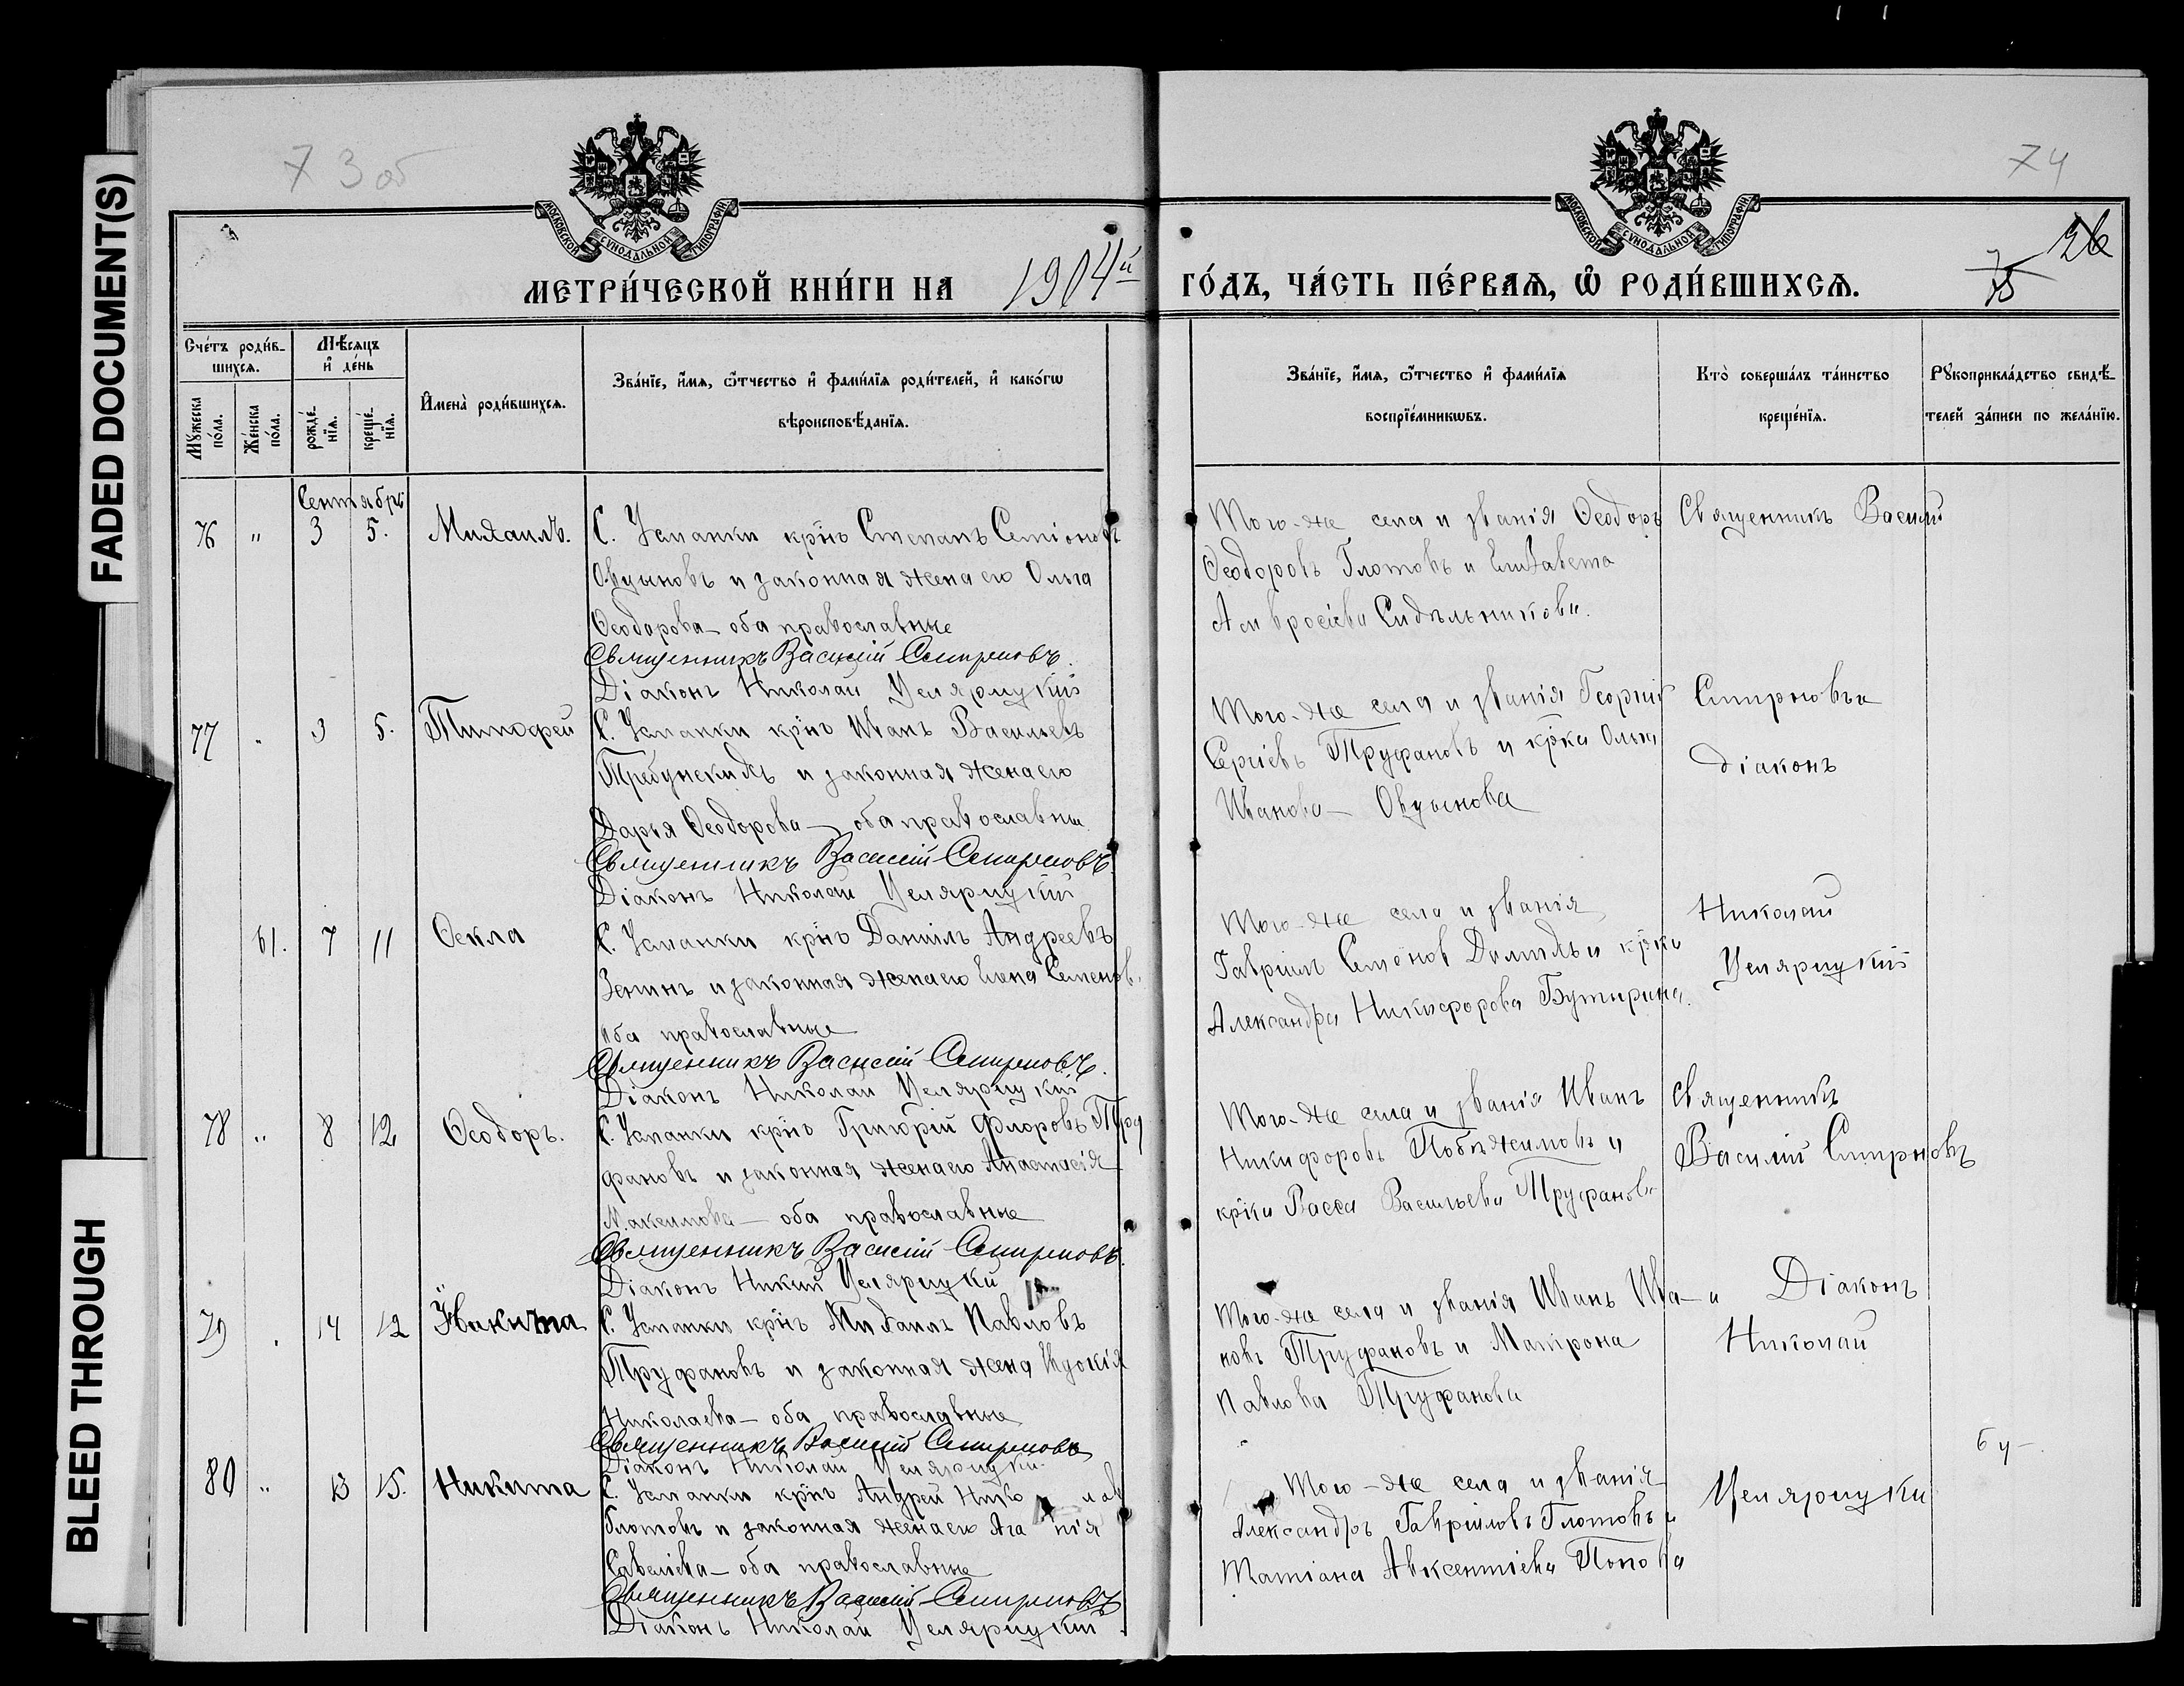 FADED DOCUMENT(S)
BLEED THROUGH
73 об
74
26
МОСКОВСКОЙ СѴНОДАЛЬНОЙ ТИПОГРАФІИ
МОСКОВСКОЙ СѴНОДАЛЬНОЙ ТИПОГРАФІИ
МЕТРИ́ЧЕСКОЙ КНИ́ГИ НА 1904й
ГО́ДЪ, ЧА́СТЬ ПЕ́РВАѦ, Ѽ РОДИ́ВШИХСѦ.
Сче́тъ роди́в-
шихсѧ.
Мꙋ́жеска по́ла.
Же́нска по́ла.
Мѣ́сѧцъ
и҆ де́нь
рожде́-
нїѧ.
креще́-
нїѧ.
И҆мена̀ роди́вшихсѧ.
Зва́нїе, и҆́мѧ, ѻ҆́тчество и҆ фамі́лїѧ роди́телей, и҆ како́гѡ
вѣроисповѣ́данїѧ.
Зва́нїе, и҆́мѧ, ѻ҆́тчество и҆ фамі́лїѧ
воспрїе́мникѡвъ.
Кто̀ соверша́лъ та́инство
креще́нїѧ.
Рꙋкоприкла́дство свидѣ́-
телей за́писи по жела́нїю.
Сентябрь
76 " 3 5. Михаилъ.
С. Усманки крнъ Степанъ Семіоновъ
Овцыновъ и законная жена его Ольга
Ѳеодорова — оба православные
Священникъ Василій Смирновъ.
Діаконъ Николай Целярицкій
Того-же села и званія Ѳеодоръ
Ѳеодоровъ Глотовъ и Елизавета
Амвросіева Сидѣльникова.
Священникъ Василій
77 " 3 5. Тимофей
С. Усманки крнъ Иванъ Васильевъ
Требунскихъ и законная жена его
Дарья Ѳеодорова — оба православны
Священникъ Василій Смирновъ.
Діаконъ Николай Целярицкій
Того-же села и званія Георгій
Сергіевъ Труфановъ и крка Ольга
Иванова — Овцынова
Смирновъ и
діаконъ
61. 7 11 Ѳекла
С. Усманки крнъ Даніилъ Андреевъ
Зенинъ и законная жена его Елена Семенов.
оба православные
Священникъ Василій Смирновъ.
Діаконъ Николай Целярицкій
Того-же села и званія
Гавріилъ Семёнов и крка
Александра Никифорова Бутырина.
Николай
Целярицкій
78 " 8 12 Ѳеодоръ.
С. Усманки крнъ Григорій Флоровъ Тру
фановъ и законная жена его Анастасія
Максимова — оба православные
Священникъ Василій Смирновъ.
Діаконъ Целярицкій
Того-же села и званія Иванъ
Никифоровъ Побѣжимовъ и
крка Васса Васильева Труфанова
Священникъ
Василій Смирновъ
79 " 14 12 Никита
С. Усманки крнъ Михаилъ Павловъ
Труфановъ и законная жена Евдокія
Николаева — оба православные
Священникъ Василій Смирновъ
Діаконъ Николай Целярицкій
Того-же села и званія Иванъ Ива-
новъ Труфановъ и Матрона
Павлова Труфанова
и Діаконъ
Николай
80 " 13 15. Никита
С. Усманки крнъ Андрей
Глотовъ и законная жена его
Савеліева — оба православные
Священникъ Василій Смирновъ
Діаконъ Николай Целярицкій
Того-же села и званія
Александръ Гавріиловъ Глотовъ и
Татіана Авксентіева Попова
Целярицкій